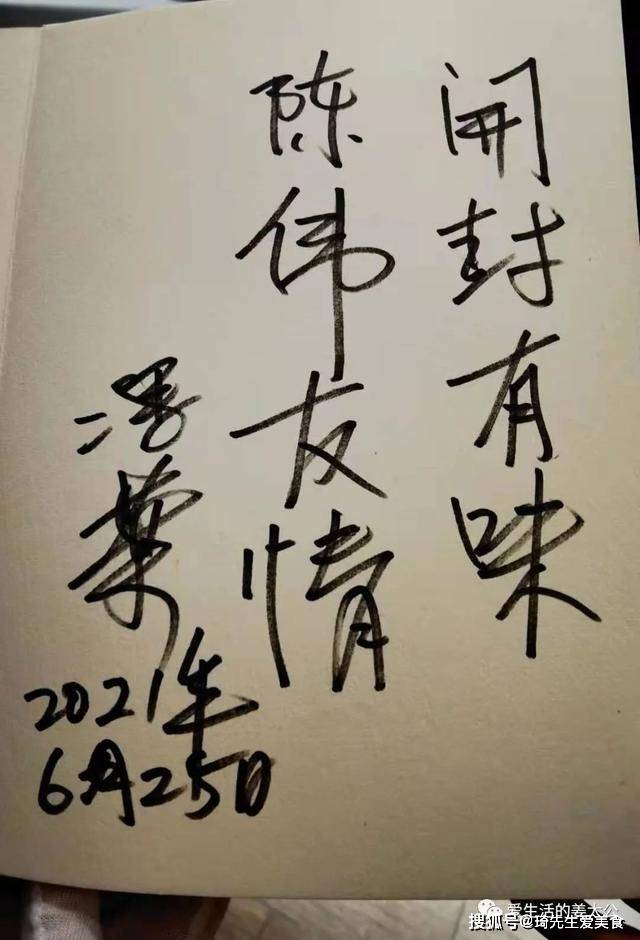 開封有味
陈伟友情
2021年
6月25日
爱生活的姜太公
搜狐号@琦先生爱美食